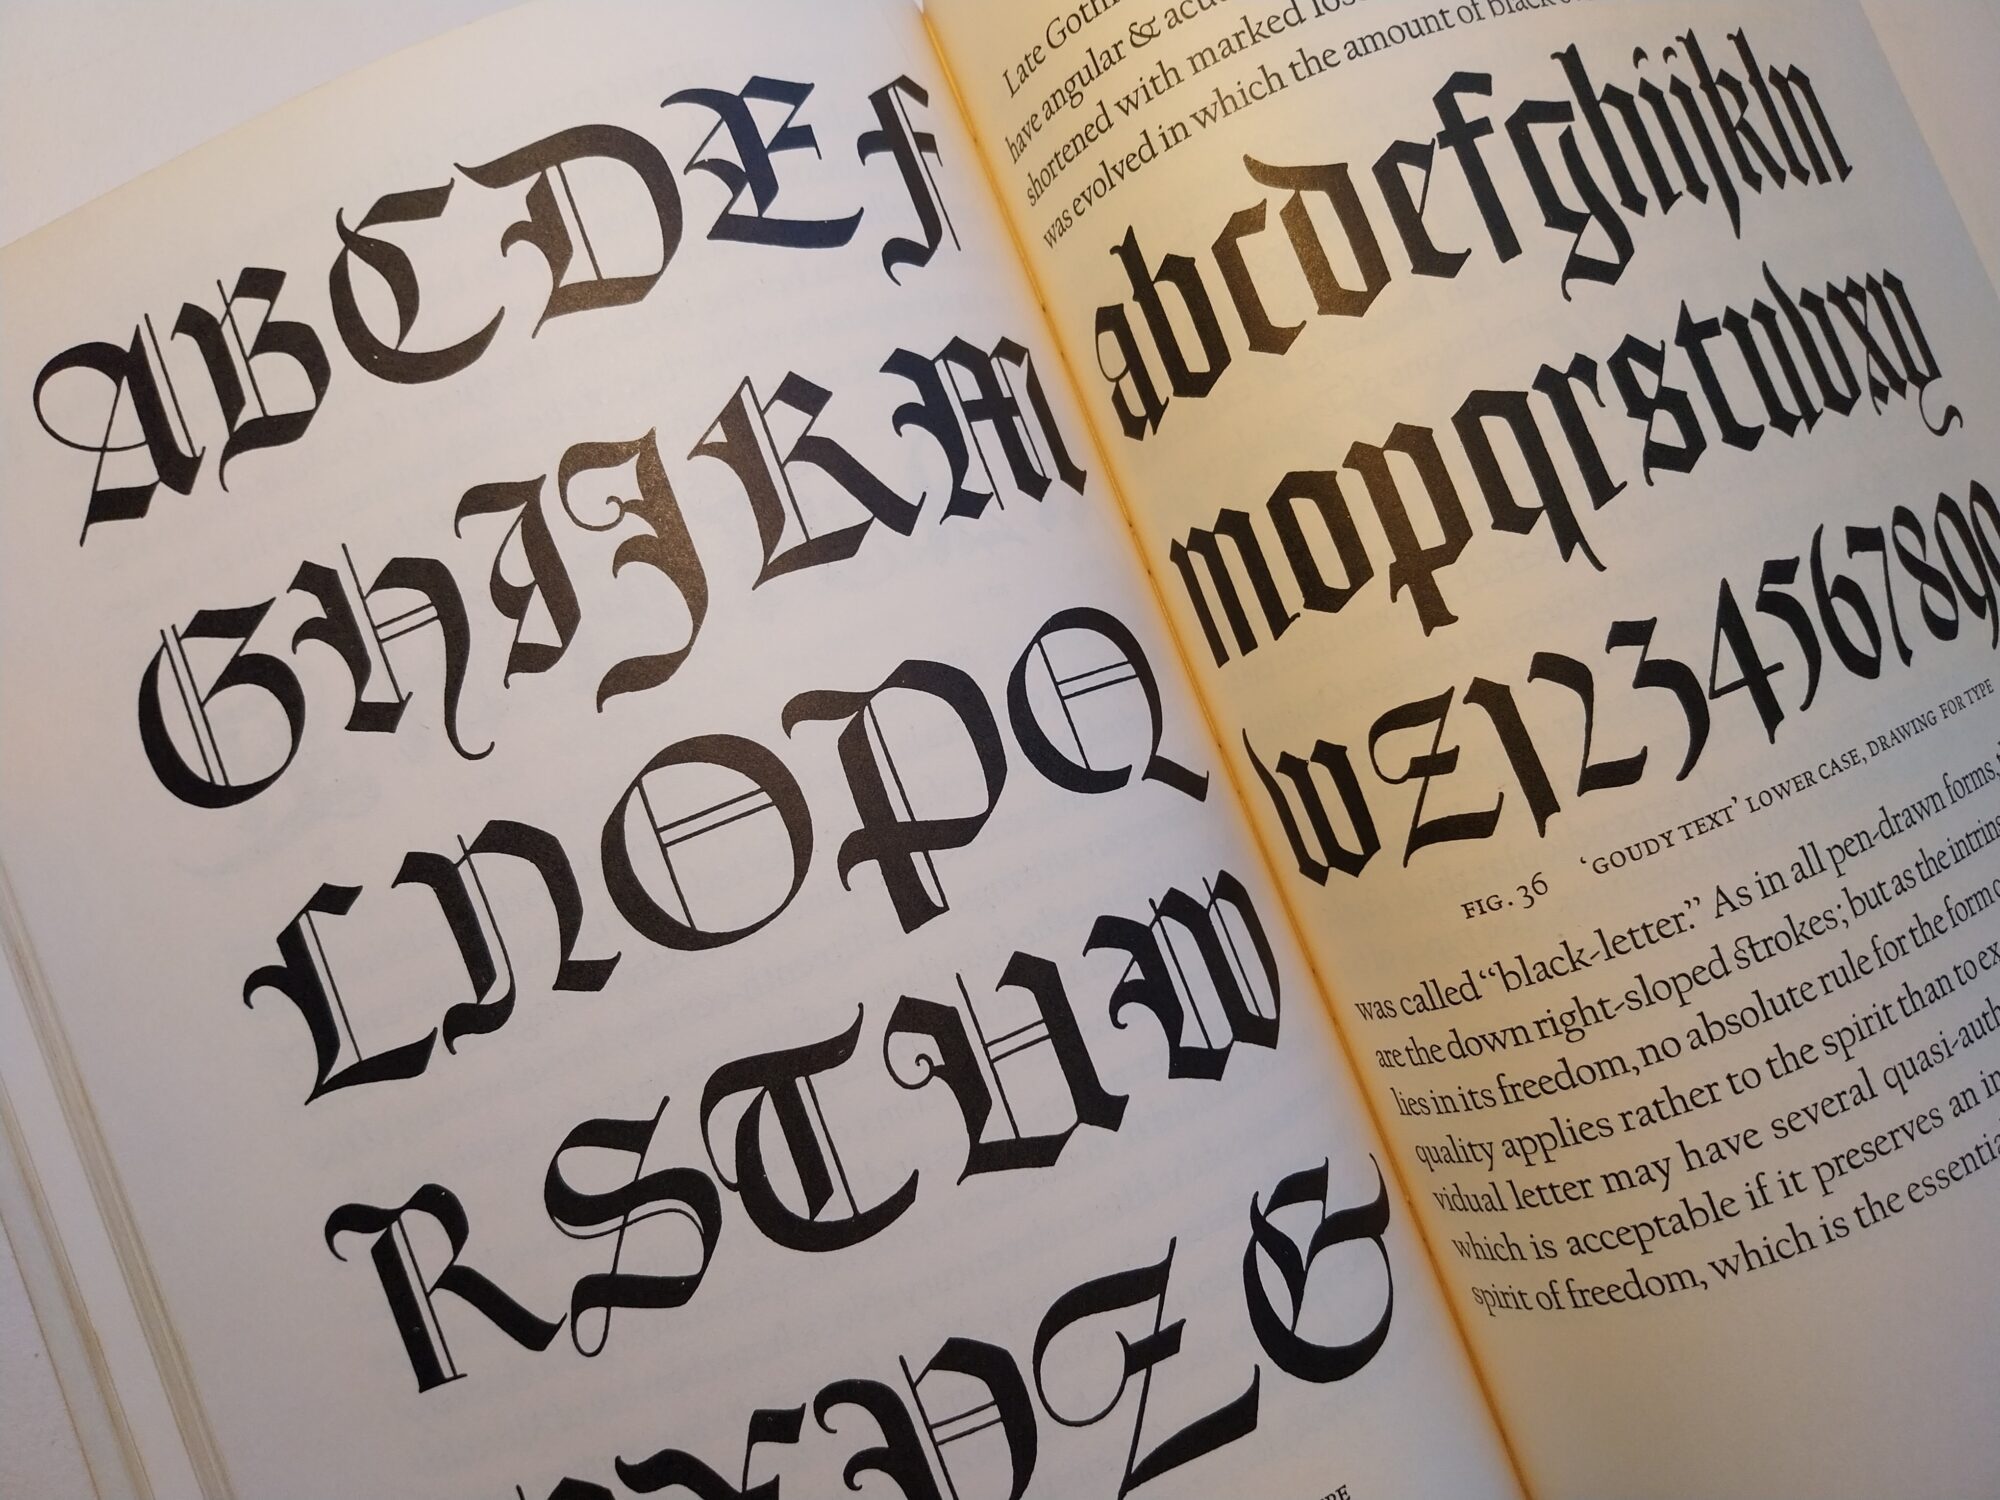 ABCDEF
GHIJKM
LNOPQ
RSTUW
XYZG
Late
have angular & 
shortened with marked
was evolved in which the amount of black
abcdefghijkln
mopqrstuvxy
wz123456789
FIG. 36 ‘GOUDY TEXT’ LOWER CASE, DRAWING FOR TYPE
was called “black-letter.” As in all pen-drawn forms,
are the down right-sloped strokes; but as the
lies in its freedom, no absolute rule for the form
quality applies rather to the spirit than to
vidual letter may have several
which is acceptable if it preserves an
spirit of freedom, which is the